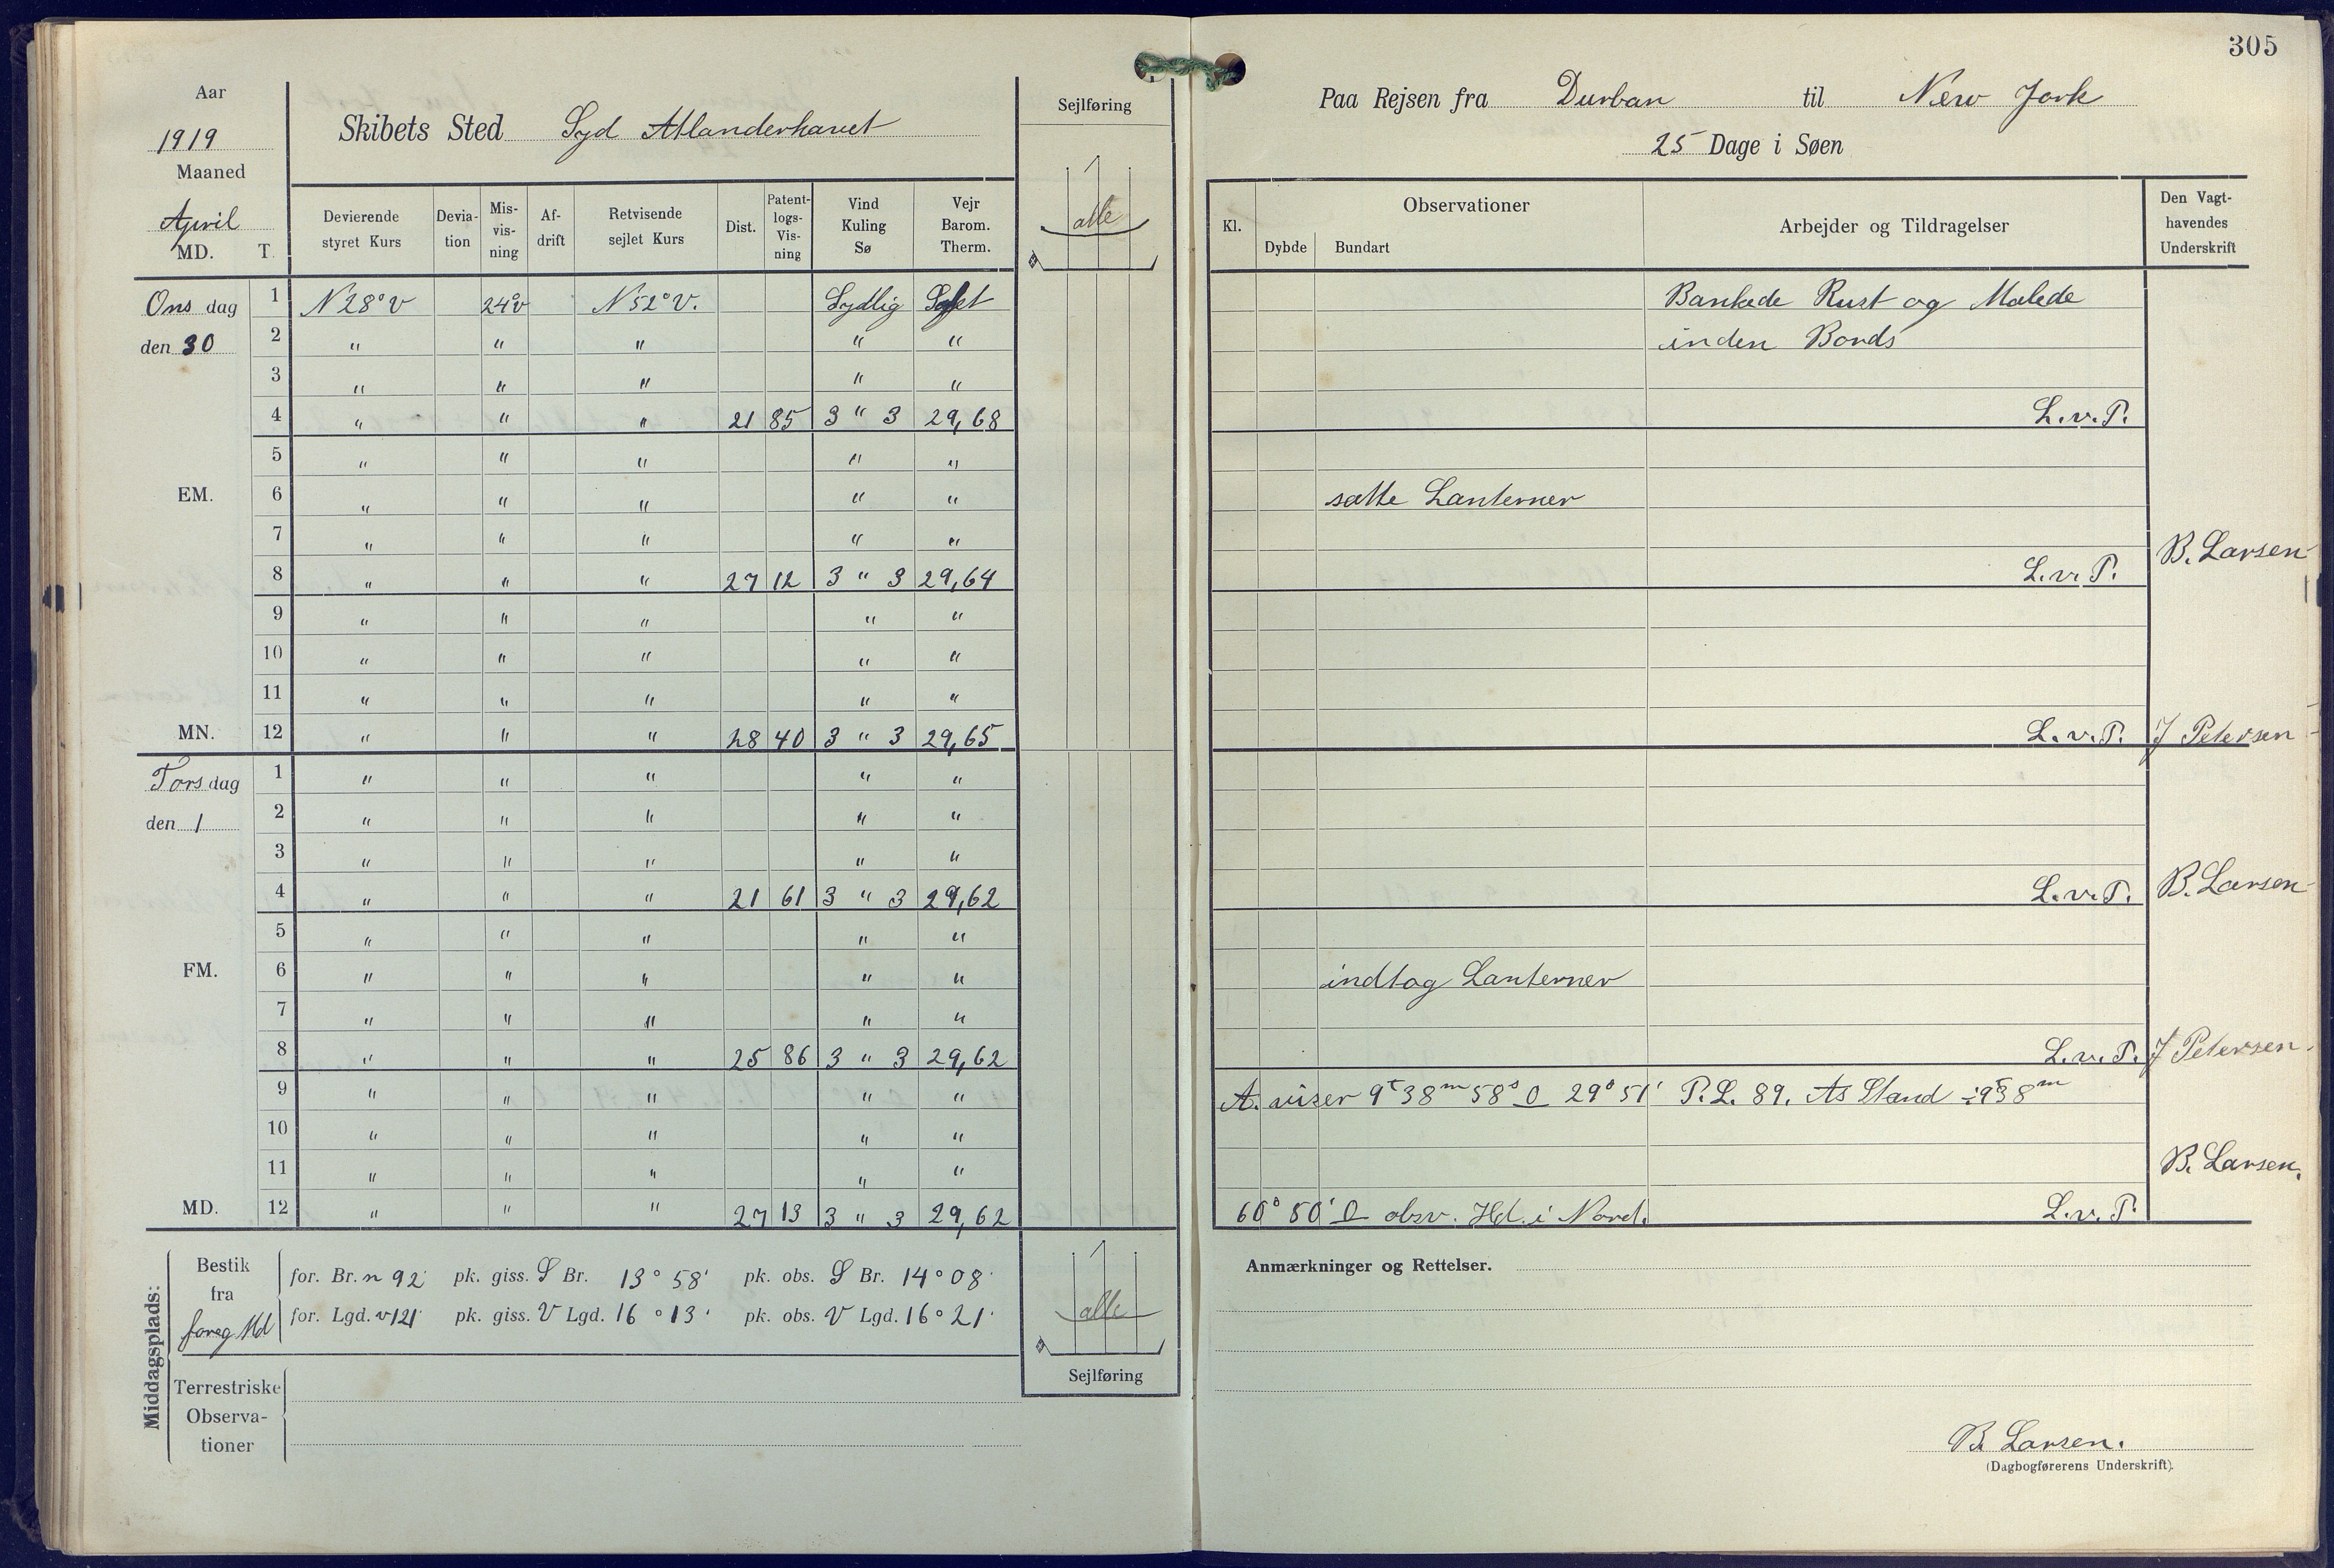 305
Aar
1919
Maaned
April
MD. T.
Skibets Sted Syd Atlanderhavet
Sejlføring
Paa Rejsen fra Durban til New Jork
25 Dage i Søen
Devierende styret Kurs
Deviation
Misvisning
Afdrift
Retvisende sejlet Kurs
Dist.
Patentlogs-Visning
Vind Kuling Sø
Vejr Barom. Therm.
alle
Kl.
Observationer
Dybde Bundart
Arbejder og Tildragelser
Den Vagthavendes Underskrift
Ons dag 1 N 28° V 24°v N 52° V. Sydlig Bankede Rust og Malede
den 30 2 " " " " " inden Bords
3 " " " " "
4 " " " 21 85 3 " 3 29,68 L.v.P.
5 " " " " "
EM. 6 " " " " " satte Lanterner
7 " " " " " B. Larsen
8 " " " 27 12 3 " 3 29,64 L.v.P.
9 " " " " "
10 " " " " "
11 " " " " "
MN. 12 " " " 28 40 3 " 3 29,65 L.v.P. J Petersen
Tors dag 1 " " " " "
den 1 2 " " " " "
3 " " " " "
4 " " " 21 61 3 " 3 29,62 L.v.P. B. Larsen
5 " " " " "
FM. 6 " " " " " indtog Lanterner
7 " " " " "
8 " " " 25 86 3 " 3 29,62 L.v.P. J Petersen.
9 " " " " " A. viser 9ᵗ38ᵐ58ˢ O 29°51' P.L. 89. As Stand ÷9ᵗ38ᵐ
10 " " " " "
11 " " " " " B. Larsen.
MD. 12 " " " 27 13 3 " 3 29,62 60° 50' O obsv. Hd. i Nord. L.v.P.
Middagsplads:
Bestik fra foreg Md
for. Br. n 92' pk. giss. S Br. 13° 58' pk. obs. S Br. 14° 08'
for. Lgd. v 121' pk. giss. V Lgd. 16° 13' pk. obs. V Lgd. 16° 21'
Terrestriske Observationer
alle
Sejlføring
Anmærkninger og Rettelser.
B. Larsen.
(Dagbogførerens Underskrift).